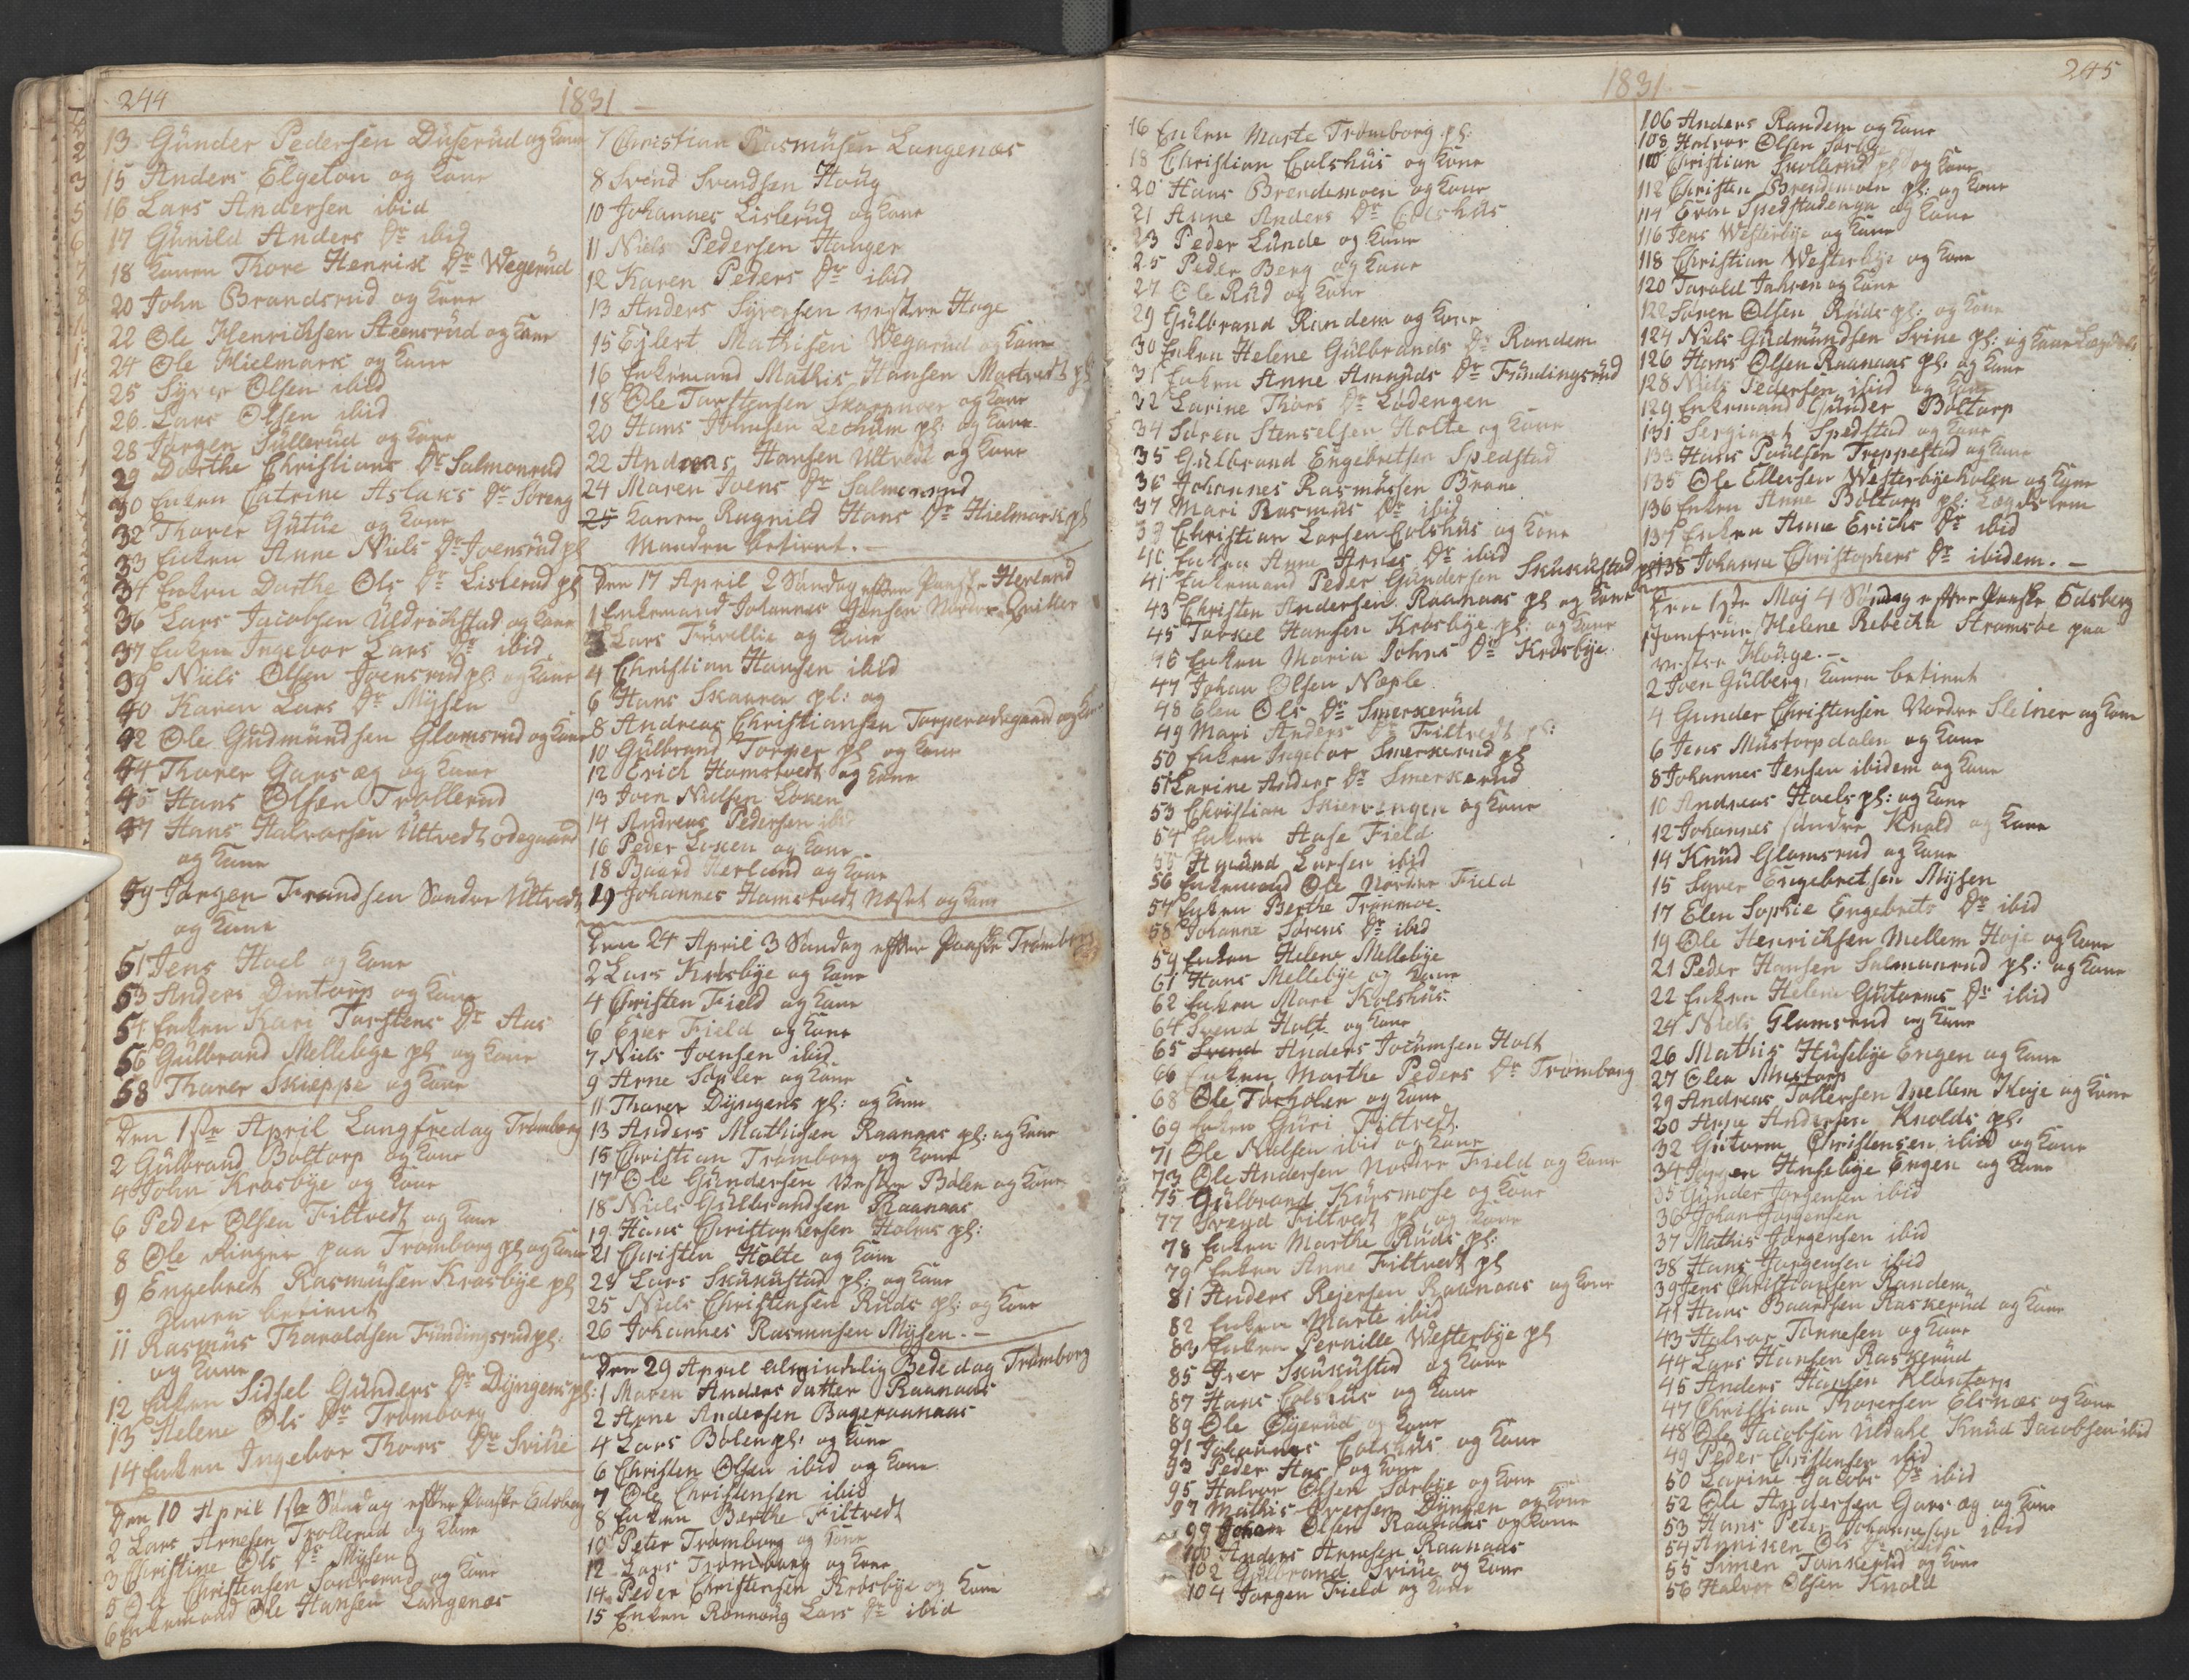 244
1831
13 Günder Pedersen Düserüd og Kone
15 Anders Elgeton og Kone
16 Lars Andersen ibid
17 Günild Anders Dr ibid
18 Konen Thore Henrik Dr Wegerüd
20 John Brandsrud og Kone
22 Ole Henrichsen Steensrüd og Kone
24 Ole Hielmark og Kone
25 Syver Olsen ibid
26 Lars Olsen ibid
28 Jørgen Süllerüd og Kone
29 Dorthe Christians Dr Salmonrud
30 Enken Catrine Aslaks Dr Søreng
32 Thorer Gütüe og Kone
33 Enken Anne Niels Dr Joensrüd pl
34 Enken Dorthe Ols Dr Lislerud pl
36 Lars Jacobsen Uldrichstad og Kone
37 Enken Ingebor Lars Dr ibid
39 Niels Olsen Joensrud pl: og Kone
40 Karen Lars Dr Mysen
42 Ole Gudmündsen Glomsrud og Kone
44 Thorer Garsæg og Kone
45 Hans Olsen Trollerud
47 Hans Halvorsen Ultvedt ødegaard
og Kone
49 Jørgen Frandsen Søndre Ultvedt
og Kone
51 Jens Hoel og Kone
53 Anders Dintorp og Kone
54 Enken Kari Torstens Dr Aas
56 Gülbrand Mellebye pl og Kone
58 Thorer Skieppe og Kone
Den 1ste April Langfredag Trømborg
2 Gülbrand Boltorp og Kone
4 John Krosbye og Kone
6 Peder Olsen Filtvedt og Kone
8 Ole Ringer paa Trømborg pl og Kone
9 Engebret Rasmüsen Krosbye pl
Konen betient
11 Rasmüs Tharaldsen Fündingsrud pl:
og Kone
12 Enken Sidsel Günders Dr Dyngens pl:
13 Helene Ols Dr Trømborg
14 Enken Ingebor Thors Dr Sviüe
Den 10 April 1ste Søndag efter Paaske Edsberg
2 Lars Arnesen Trollerud og Kone
3 Christine Ols Dr Mysen
5 Ole Christensen og Kone
6 Enkemand Ole Hansen Langenæs
7 Christian Rasmüsen Langenæs
8 Svend Svendsen Houg
10 Johannes Lislerüd og Kone
11 Niels Pedersen Hanger
12 Karen Peders Dr ibid
13 Anders Syversen vestre Hage
15 Eylert Mathisen Wegarüd og Kone
16 Enkemand Mathis Hansen Mortvedt pl
18 Ole Torstensen Skarpnoer og Kone
20 Hans Johnsen Lechum pl: og Kone
22 Andreas Hansen Ultvedt og Kone
24 Maren Joens Dr Salmonrud
25 Konen Ragnild Hans Dr Hielmark pl
Manden betient.
Den 17 April 2 Søndag efter Paaske Herland
1 Enkemand Johannes Jensen Nordre Qviller
3 Lars Fürellie og Kone
4 Christian Hansen ibid
6 Hans Skauren pl: og
8 Andreas Christiansen Torperødegaard og Kone
10 Gülbrand Torper pl og Kone
12 Erich Homstvedt og Kone
13 Joen Nielsen Løken
14 Andreas Pedersen ibid
16 Peder Løken og Kone
18 Baard Herland og Kone
19 Johannes Homstvedt Næset og Kone
Den 24 April 3 Søndag efter Paaske Trømborg
2 Lars Krosbye og Kone
4 Christen Field og Kone
6 Ejer Field og Kone
7 Niels Joensen ibid
9 Arne Sopler og Kone
11 Thorer Dyngens pl: og Kone
13 Anders Mathisen Raanaas pl: og Kone
15 Christian Trømborg og Kone
17 Ole Gündersen Vestre Bølen og Kone
18 Niels Gulbrandsen Raanaas
19 Hans Christophersen Holms pl:
21 Christen Holte og Kone
23 Lars Skükustad pl: og Kone
25 Niels Christensen Ruds pl: og Kone
26 Johannes Rasmusen Mysen.
Den 29 April almindelig Bededag Trømborg
1 Maren Anders datter Raanaas
2 Arne Andersen Bageraanaas
4 Lars Bolen pl: og Kone
6 Christen Olsen ibid og Kone
7 Ole Christensen ibid
8 Enken Berthe Filtvedt
10 Peter Trømborg og Kone
12 Lars Trømborg og Kone
14 Peder Christensen Krosbye og Kone
15 Enken Rønnoug Lars Dr ibid
1831
245
16 Enken Marte Trømborg pl:
18 Christian Colshüs og Kone
20 Hans Brendemoen og Kone
21 Anne Anders Dr Colshüs
23 Peder Lünde og Kone
25 Peder Berg og Kone
27 Ole Rüd og Kone
29 Gülbrand Randem og Kone
30 Enken Helene Gülbrands Dr Randem
31 Enken Anne Amunds Dr Fündingsrüd
32 Larine Thors Dr Lødengen
34 Søren Stenselsen Holte og Kone
35 Gülbrand Engebretsen Spedstad
36 Johannes Rasmüsen Brane
37 Mari Rasmus Dr ibid
39 Christian Larsen Colshüs og Kone
40 Enken Anne Arnes Dr ibid
41 Enkemand Peder Gündersen Skukustad pl
43 Christen Andersen Raanaas pl og Kone
45 Torkel Hansen Krosbye pl: og Kone
46 Enken Maria Johns Dr Krosbye
47 Johan Olsen Næple
48 Elen Ols Dr Smerkerüd
49 Mari Anders Dr Filtvedt pl:
50 Enken Ingebor Smerkerud pl
51 Larine Anders Dr Smerkerud
53 Christian Skiervengen og Kone
54 Enken Aase Field
55 Amünd Larsen ibid
56 Enkemand Ole Nordre Field
57 Enken Berthe Trønmoe
58 Johanne Sørens Dr ibid
59 Enken Helene Mellebye
61 Hans Mellebye og Kone
62 Enken Mari Kolshüs
64 Svend Holt og Kone
65 Svend Anders Jocumsen Holt
66 Enken Marthe Peders Dr Trømborg
68 Ole Torholen og Kone
69 Enken Güri Filtvedt
71 Ole Nielsen ibid og Kone
73 Ole Andersen Nordre Field og Kone
75 Gülbrand Kürsmose og Kone
77 Svend Filtvedt pl og Kone
78 Enken Marthe Rüds pl:
79 Enken Anne Filtvedt pl
81 Anders Rejersen Raanaas og Kone
82 Enken Marte ibid
83 Enken Pernille Westerbye pl
85 Iver Skukustad og Kone
87 Hans Colshüs og Kone
89 Ole Øyerud og Kone
91 Johannes Colshüs og Kone
93 Peder Aas og Kone
95 Halvor Olsen Sørbye og Kone
97 Mathis Iversen Dyngen og Kone
99 Johan Olsen Raanaas og Kone
100 Anders Arnesen Raanaas
102 Gulbrand Sviüe og Kone
104 Jørgen Field og Kone
106 Anders Randem og Kone
108 Halvor Olsen Sørbye
110 Christian Skollerud pl og Kone
112 Christen Brendemoen pl: og Kone
114 Even Spedstadenga og Kone
116 Jens Westerbye og Kone
118 Christian Westerbye og Kone
120 Torald Jahren og Kone
122 Søren Olsen Rüds pl: og Kone
124 Niels Güdmündsen Sviue pl: og Kone
126 Hans Olsen Raanaas pl: og Kone
128 Niels Pedersen ibid og Kone
129 Enkemand Günder Boltorp
131 Sergiant Spedstad og Kone
133 Hans Poulsen Treppestad og Kone
135 Ole Ellersen Westerbyeholen og Kone
136 Enken Anne Boltorp pl: Lægdslem
137 Enken Anne Erichs Dr ibid
138 Johanne Christophers Dr ibidem.
Den 1ste Maj 4 Søndag efter Paaske Edsberg
1 Jomfrue Helene Rebecka Strømsøe paa
vestre Houge.
2 Joen Gülberg, Konen betient
4 Gunder Christensen Nordre Sletner og Kone
6 Jens Müstorpdalen og Kone
8 Johannes Jensen ibidem og Kone
10 Andreas Hoels pl: og Kone
12 Johannes søndre Knold og Kone
14 Knüd Glomsrud og Kone
15 Syver Engebretsen Mysen
17 Elen Sophie Engebrets Dr ibid
19 Ole Henrichsen Mellem Hoje og Kone
21 Peder Hansen Salmonrud pl: og Kone
22 Enken Helene Gütorms Dr ibid
24 Niels Glomsrud og Kone
26 Mathis Hüsebye Engen og Kone
27 Olea Mustorp
29 Andreas Tollersen Mellem Hoje og Kone
30 Arne Andersen Knolds pl:
32 Gütorm Christensen ibid og Kone
34 Jørgen Husebye Engen og Kone
35 Günder Jørgensen ibid
36 Johan Jørgensen
37 Mathis Jørgensen ibid
38 Hans Jørgensen ibid
39 Jens Christiansen Randem
41 Hans Baardsen Raskerüd og Kone
43 Halvor Tønnesen og Kone
44 Lars Hansen Raskerüd
45 Anders Hansen Klontorp
47 Christian Thoresen Elsnæs og Kone
48 Ole Jacobsen Uldahl Knüd Jacobsen ibid
49 Peder Christensen ibid
50 Larine Jacobs Dr ibid
52 Ole Andersen Garsæg og Kone
53 Hans Peter Johannesen ibid
54 Anniken Ols Dr ibid
55 Simen Tønkerud og Kone
56 Halvor Olsen Knold